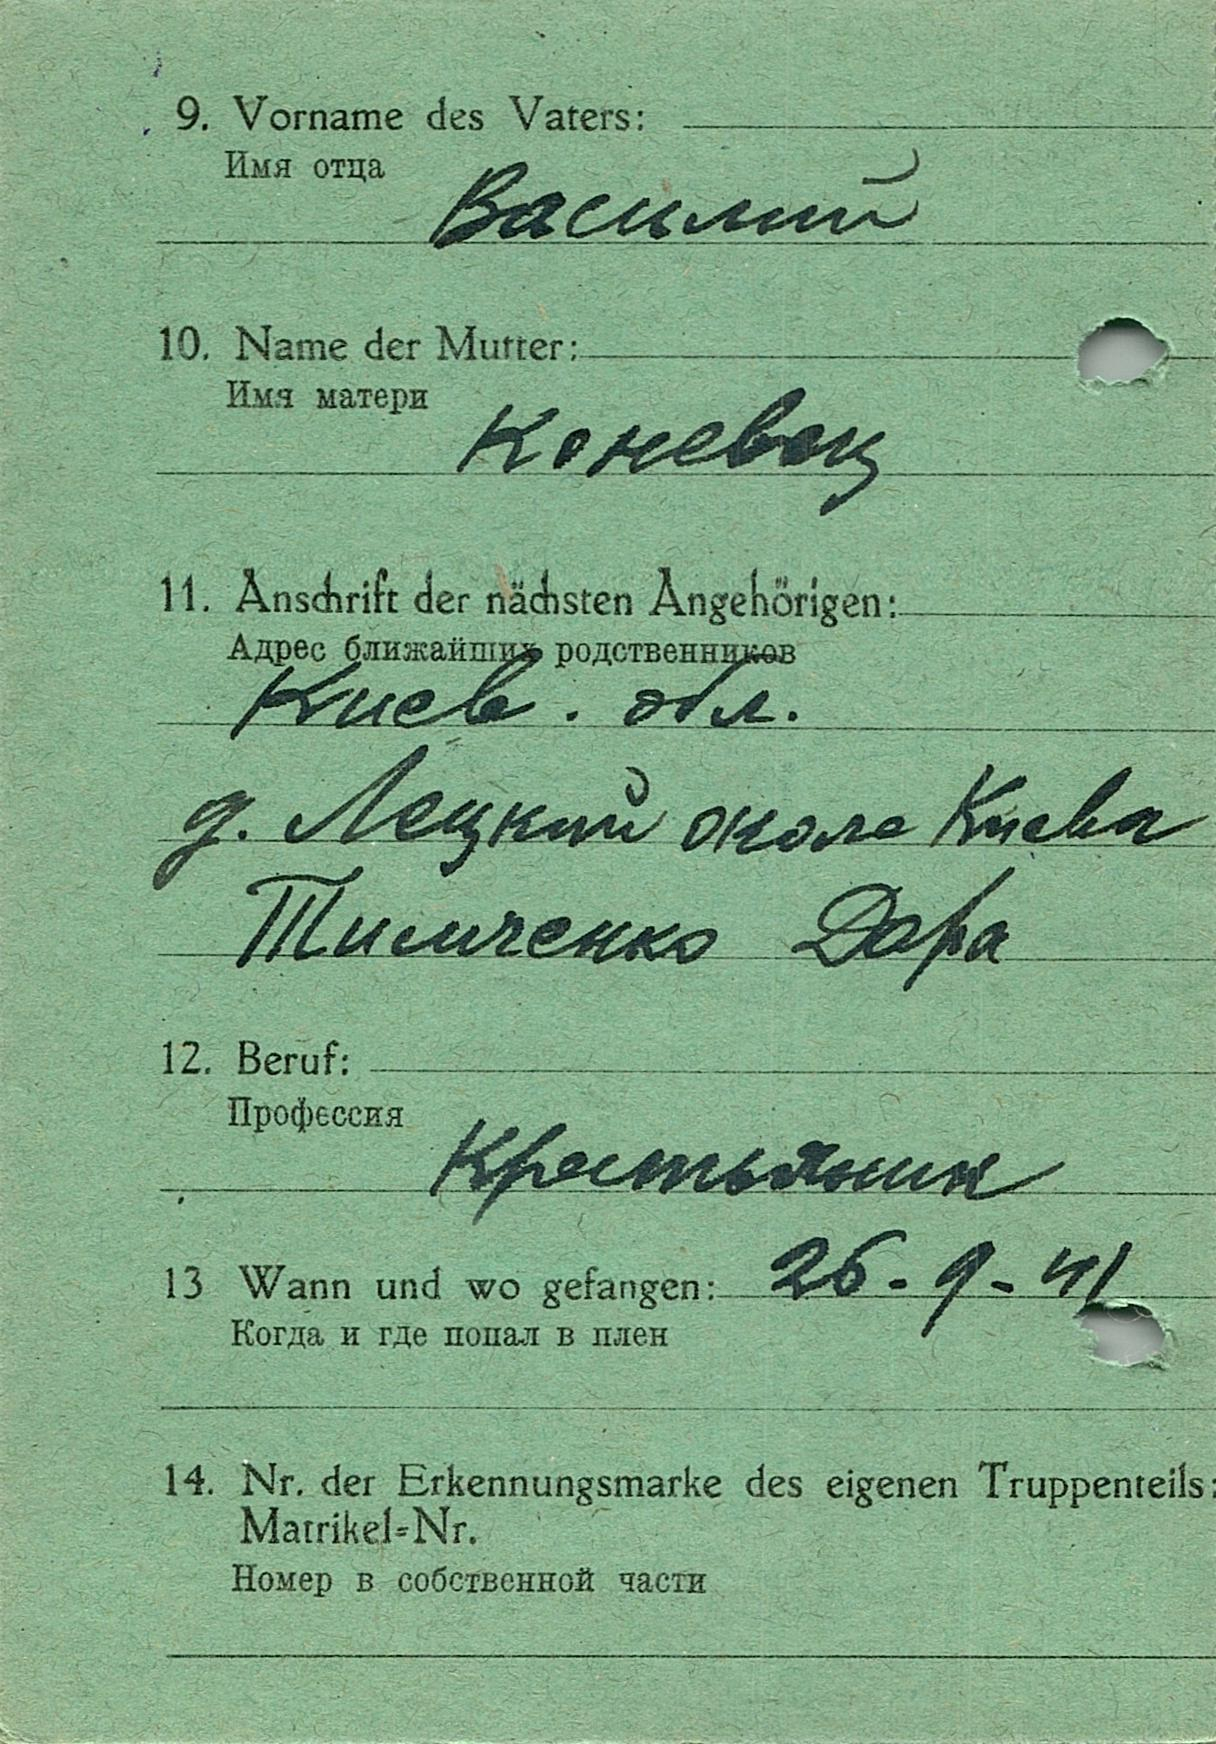 9. Vorname des Vaters:
Имя отца
Василий
10. Name der Mutter:
Имя матери
Коневец
11. Anschrift der nächsten Angehörigen:
Адрес ближайших родственников
Киев. обл.
д. Лецкий около Киева
Тимченко Дора
12. Beruf:
Профессия
Крестьянин
13 Wann und wo gefangen: 26-9-41
Когда и где попал в плен
14. Nr. der Erkennungsmarke des eigenen Truppenteils:
Matrikel=Nr.
Номер в собственной части